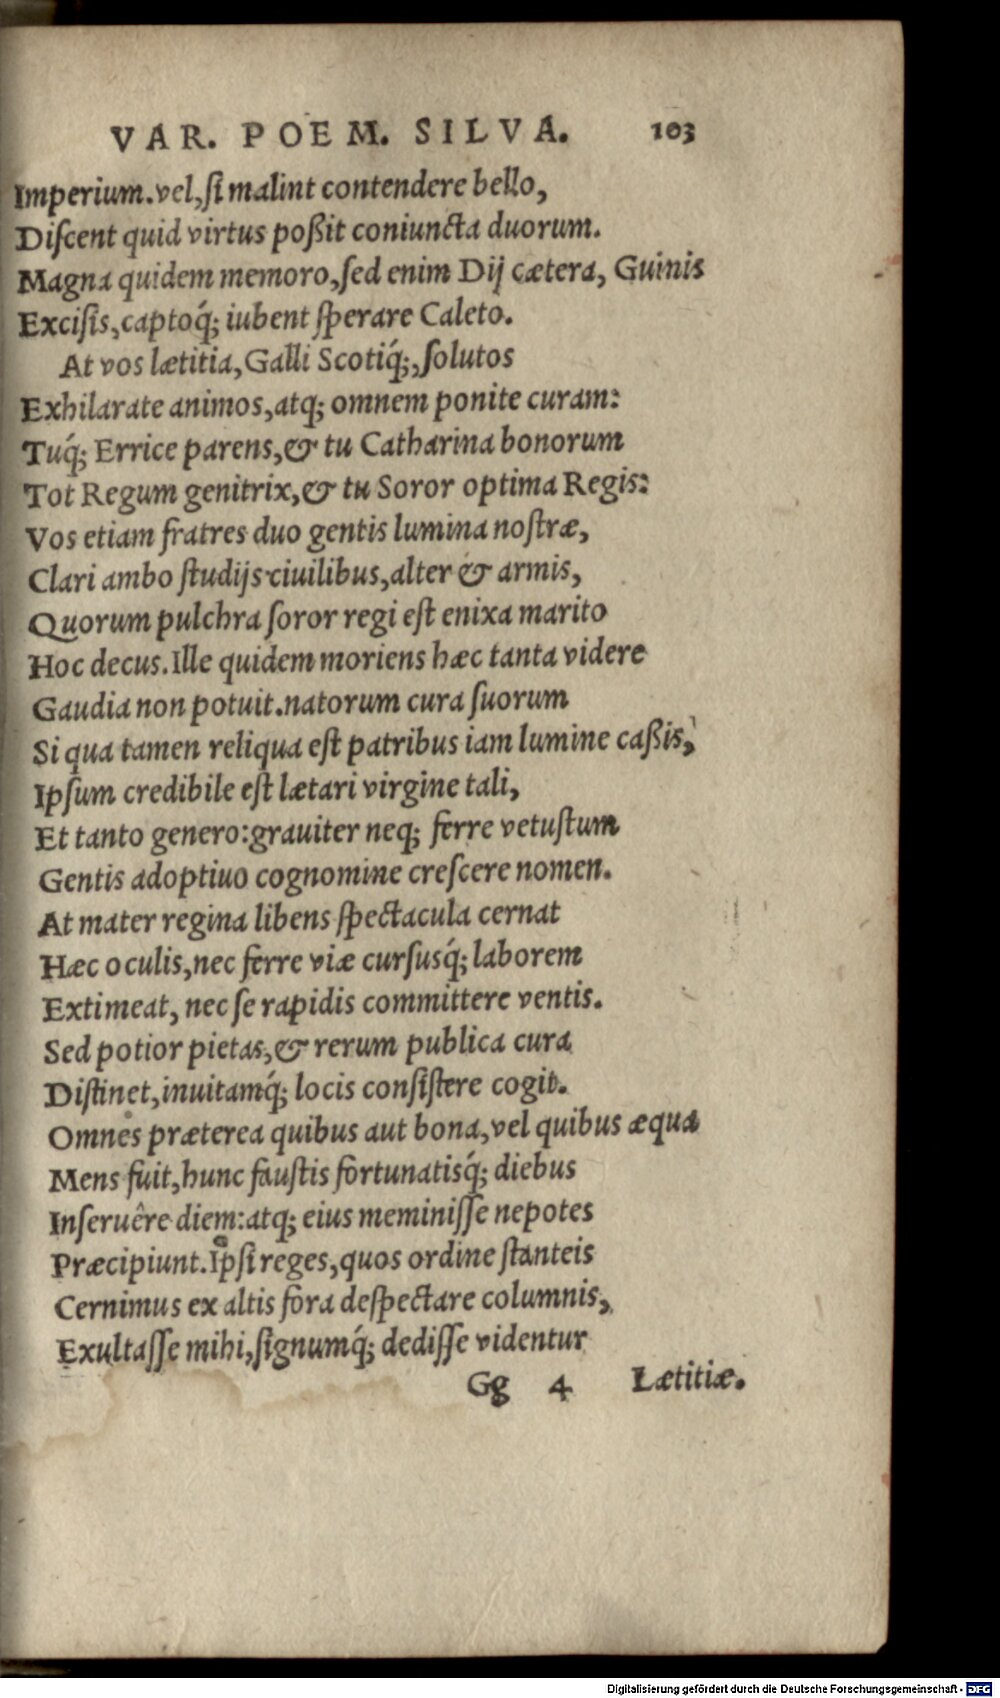 VAR. POEM. SILVA. 103
Imperium. vel, ſi malint contendere bello,
Diſcent quid virtus poßit coniuncta duorum.
Magna quidem memoro, ſed enim Dij cætera, Guinis
Exciſis, captoq́; iubent ſperare Caleto.
At vos lætitia, Galli Scotiq́;, ſolutos
Exhilarate animos, atq; omnem ponite curam:
Tuq́; Errice parens, & tu Catharina bonorum
Tot Regum genitrix, & tu Soror optima Regis:
Vos etiam fratres duo gentis lumina noſtræ,
Clari ambo ſtudijs ciuilibus, alter & armis,
Quorum pulchra ſoror regi eſt enixa marito
Hoc decus. Ille quidem moriens hæc tanta videre
Gaudia non potuit. natorum cura ſuorum
Si qua tamen reliqua eſt patribus iam lumine caßis,
Ipſum credibile eſt lætari virgine tali,
Et tanto genero: grauiter neq; ferre vetuſtum
Gentis adoptiuo cognomine creſcere nomen.
At mater regina libens ſpectacula cernat
Hæc oculis, nec ferre viæ curſusq́; laborem
Extimeat, nec ſe rapidis committere ventis.
Sed potior pietas, & rerum publica cura
Diſtinet, inuitamq́; locis conſiſtere cogit.
Omnes præterea quibus aut bona, vel quibus æqua
Mens fuit, hunc fauſtis fortunatisq́; diebus
Inſeruêre diem: atq; eius meminiſſe nepotes
Præcipiunt. Ipſi reges, quos ordine ſtanteis
Cernimus ex altis fora deſpectare columnis,
Exultaſſe mihi, ſignumq́; dediſſe videntur
Gg 4 Lætitiæ.
Digitalisierung gefördert durch die Deutsche Forschungsgemeinschaft - DFG